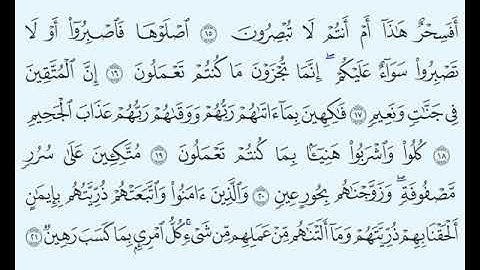 أَفَسِحْرٌ هَـٰذَآ أَمْ أَنتُمْ لَا تُبْصِرُونَ ١٥ ٱصْلَوْهَا فَٱصْبِرُوٓا۟ أَوْ لَا
تَصْبِرُوا۟ سَوَآءٌ عَلَيْكُمْ ۖ إِنَّمَا تُجْزَوْنَ مَا كُنتُمْ تَعْمَلُونَ ١٦ إِنَّ ٱلْمُتَّقِينَ
فِى جَنَّـٰتٍ وَنَعِيمٍ ١٧ فَـٰكِهِينَ بِمَآ ءَاتَىٰهُمْ رَبُّهُمْ وَوَقَىٰهُمْ رَبُّهُمْ عَذَابَ ٱلْجَحِيمِ
١٨ كُلُوا۟ وَٱشْرَبُوا۟ هَنِيٓـًٔۢا بِمَا كُنتُمْ تَعْمَلُونَ ١٩ مُتَّكِـِٔينَ عَلَىٰ سُرُرٍ
مَّصْفُوفَةٍ ۖ وَزَوَّجْنَـٰهُم بِحُورٍ عِينٍ ٢٠ وَٱلَّذِينَ ءَامَنُوا۟ وَٱتَّبَعَتْهُمْ ذُرِّيَّتُهُم بِإِيمَـٰنٍ
أَلْحَقْنَا بِهِمْ ذُرِّيَّتَهُمْ وَمَآ أَلَتْنَـٰهُم مِّنْ عَمَلِهِم مِّن شَىْءٍ ۚ كُلُّ ٱمْرِئٍۭ بِمَا كَسَبَ رَهِينٌ ٢١